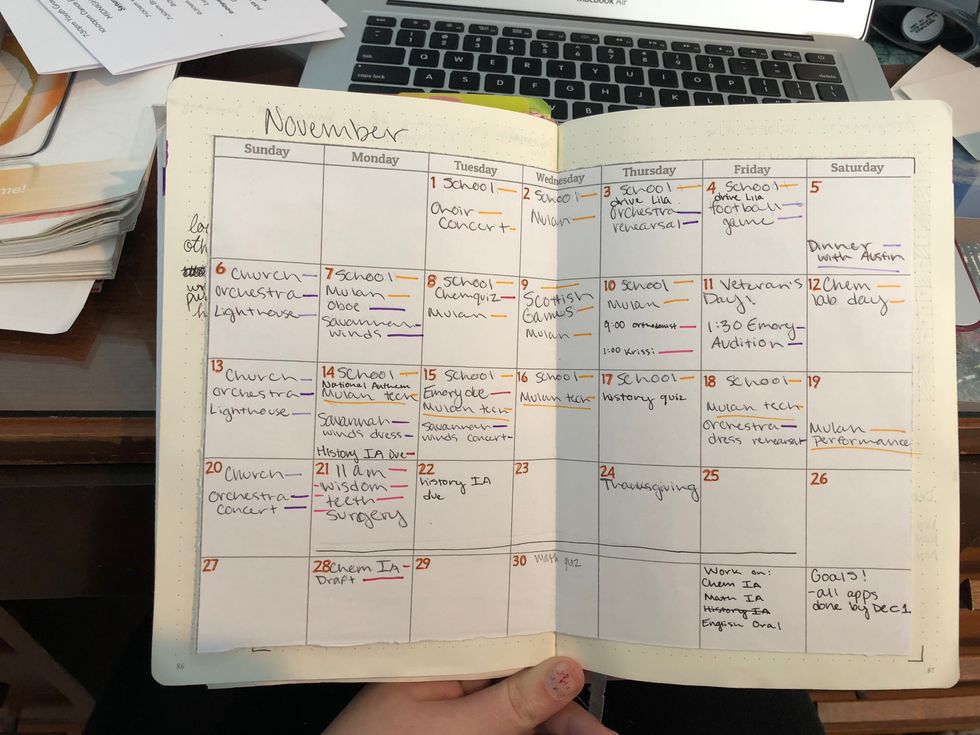 MacBook Air
November
Sunday Monday Tuesday Wednesday Thursday Friday Saturday
1 School
Choir
Concert
2 School
Mulan
3 School
drive Lila
orchestra
rehearsal
4 School
drive Lila
football
game
5
Dinner
with Austin
6 Church
orchestra
Lighthouse
7 School
Mulan
oboe
Savannah
winds
8 School
Chem quiz
Mulan
9
Scottish
Games
Mulan
10 School
Mulan
9:00 orthodontist
1:00 Krissi
11 Veteran's
Day!
1:30 Emory
Audition
12 Chem
lab day
13 Church
orchestra
Lighthouse
14 School
National Anthem
Mulan tech
Savannah
winds dress
History IA Due
15 School
Emory due
Mulan tech
Savannah
winds concert
16 School
Mulan tech
17 School
history quiz
18 School
Mulan tech
orchestra
dress rehearsal
19
Mulan
Performance
20 Church
orchestra
concert
21 11 am
wisdom
teeth
surgery
22
history IA
due
23
24
Thanksgiving
25
26
27
28 Chem IA
Draft
29
30 math quiz
Work on:
Chem IA
Math IA
History IA
English Oral
Goals!
-all apps
done by Dec 1
86
87